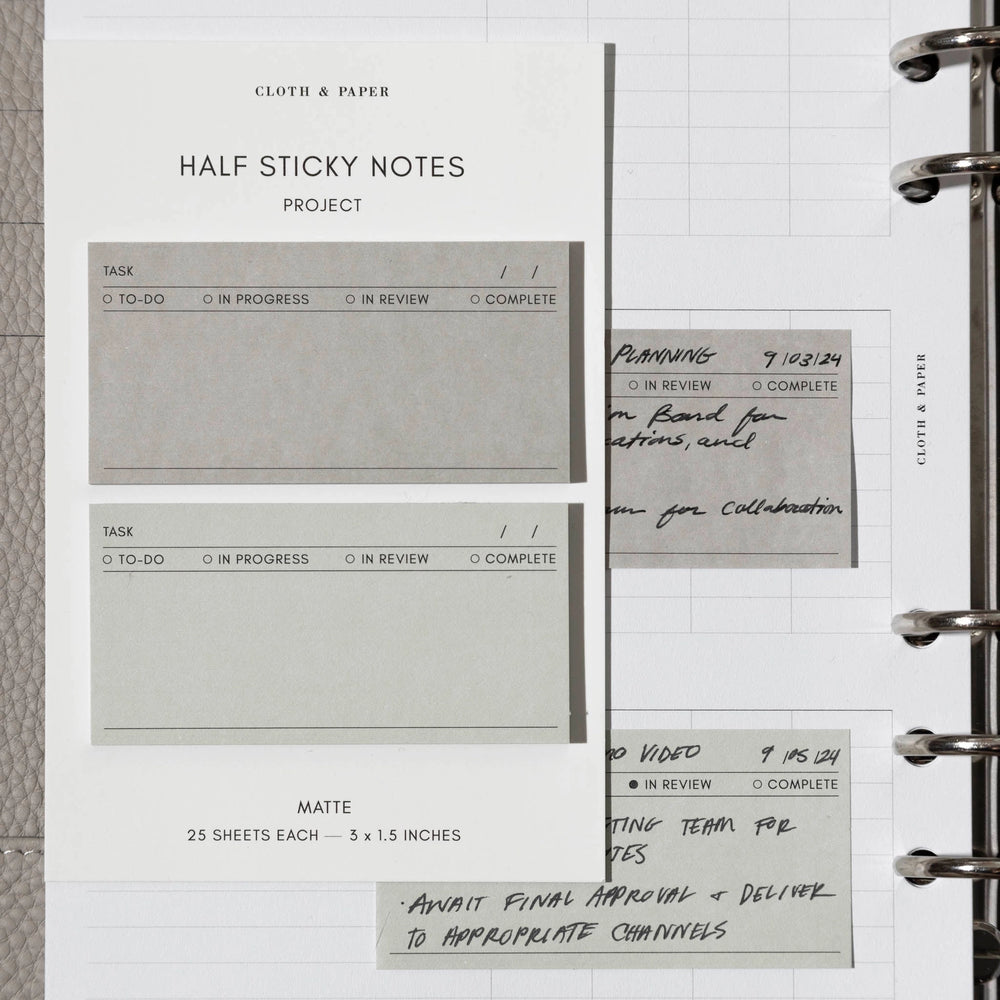 CLOTH & PAPER
HALF STICKY NOTES
PROJECT
TASK / /
TO-DO IN PROGRESS IN REVIEW COMPLETE
TASK / /
TO-DO IN PROGRESS IN REVIEW COMPLETE
MATTE
25 SHEETS EACH — 3 x 1.5 INCHES
PLANNING 9/03/24
IN REVIEW COMPLETE
Board for
and
for Collaboration
VIDEO 9/05/24
IN REVIEW COMPLETE
TEAM FOR
· AWAIT FINAL APPROVAL & DELIVER
TO APPROPRIATE CHANNELS
CLOTH & PAPER